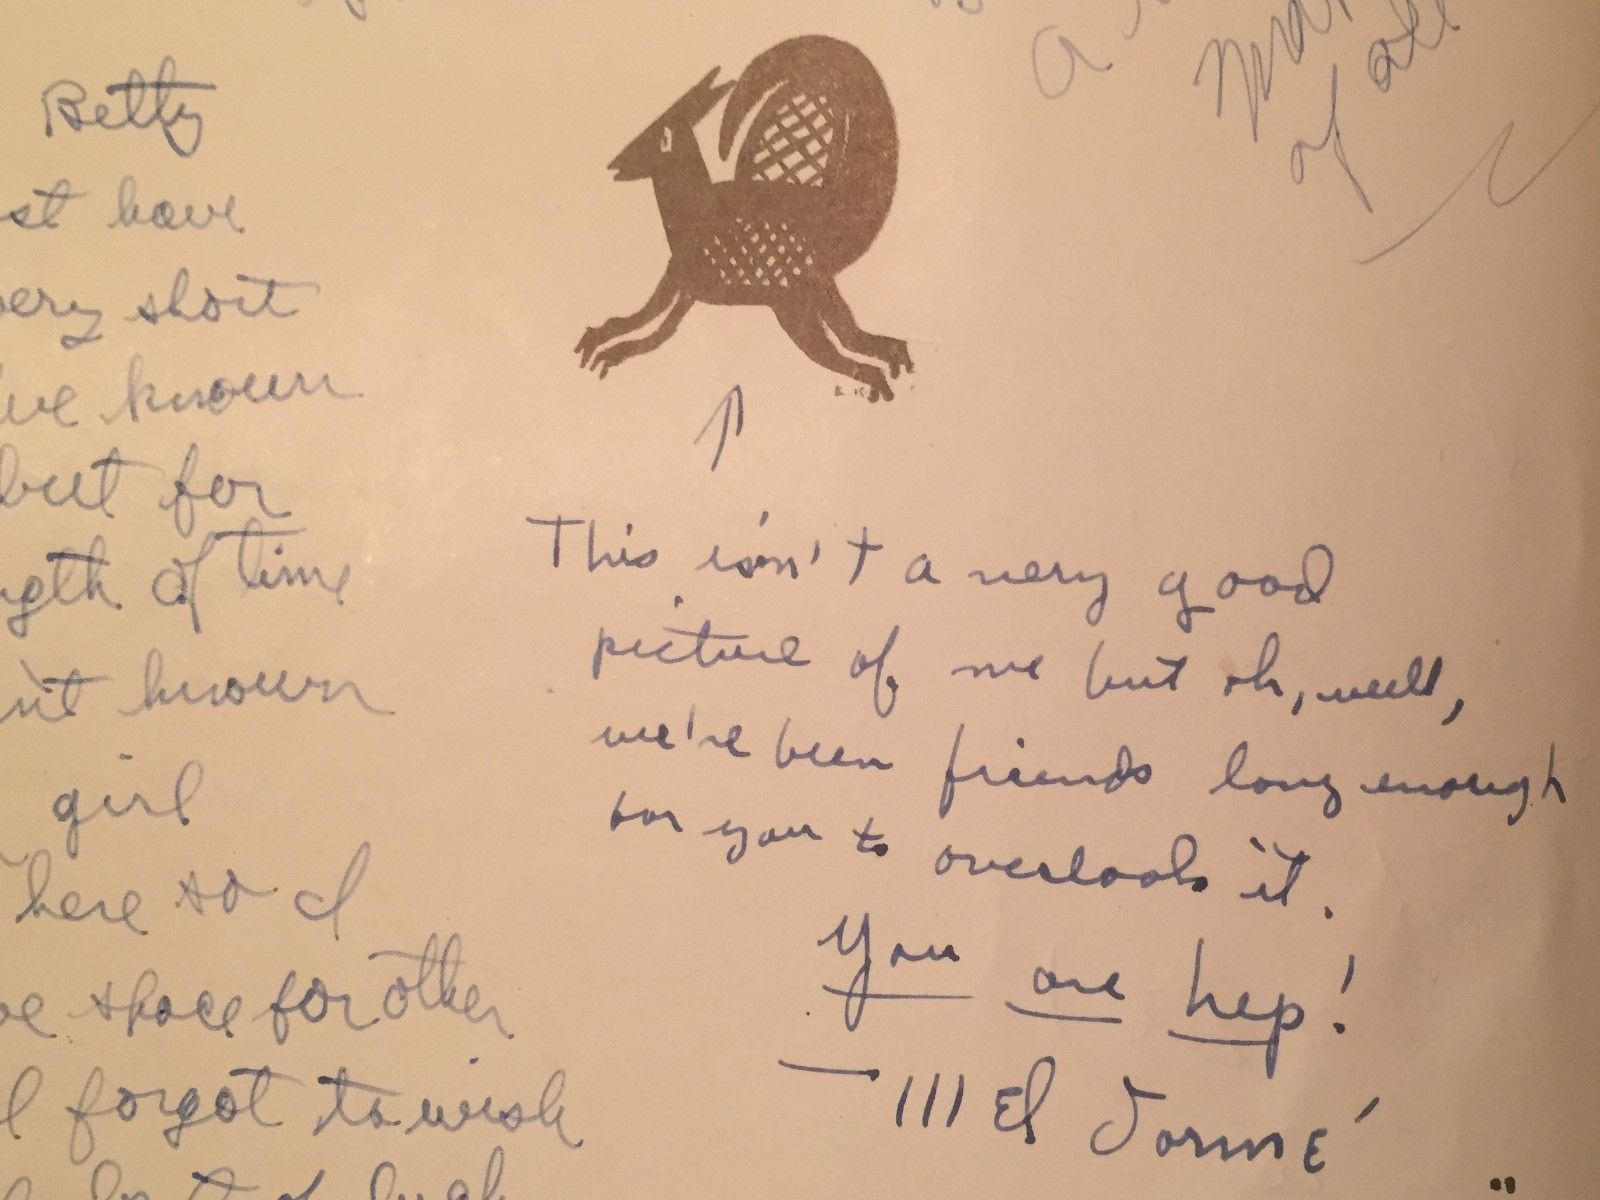 Betty
st have
very short
I've known
but for
ngth of time
n't known
girl
here so I
ve space for other
I forgot to wish
best of luck
a
of all
This isn't a very good
picture of me but oh, well,
we're been friends long enough
for you to overlook it.
You are hep!
— Mel Tormé